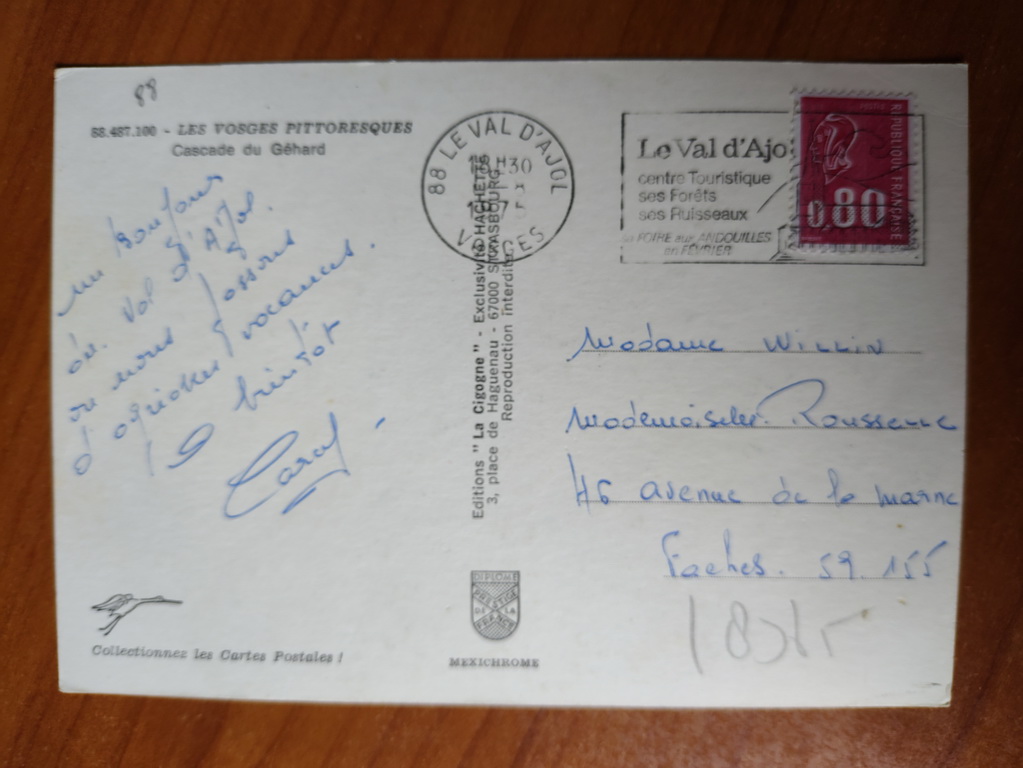 88
88.487.100 - LES VOSGES PITTORESQUES
Cascade du Géhard
un bonjour
du Val d'Ajol
ou nous passons
d'agréables vacances.
à bientôt
Carol
Collectionnez les Cartes Postales !
88 LE VAL D'AJOL
VOSGES
Editions "La Cigogne" - Exclusivité HACHETTE
3, place de Haguenau - 67000 STRASBOURG
Reproduction interdite
DIPLOME
PRESTIGE
DE LA
FRANCE
MEXICHROME
Le Val d'Ajo
centre Touristique
ses Forêts
ses Ruisseaux
sa FOIRE aux ANDOUILLES
en FÉVRIER
REPUBLIQUE FRANÇAISE
POSTES
0,80
Madame WILLIN
Mademoiselle
46 avenue de la marne
Faches. 59.155